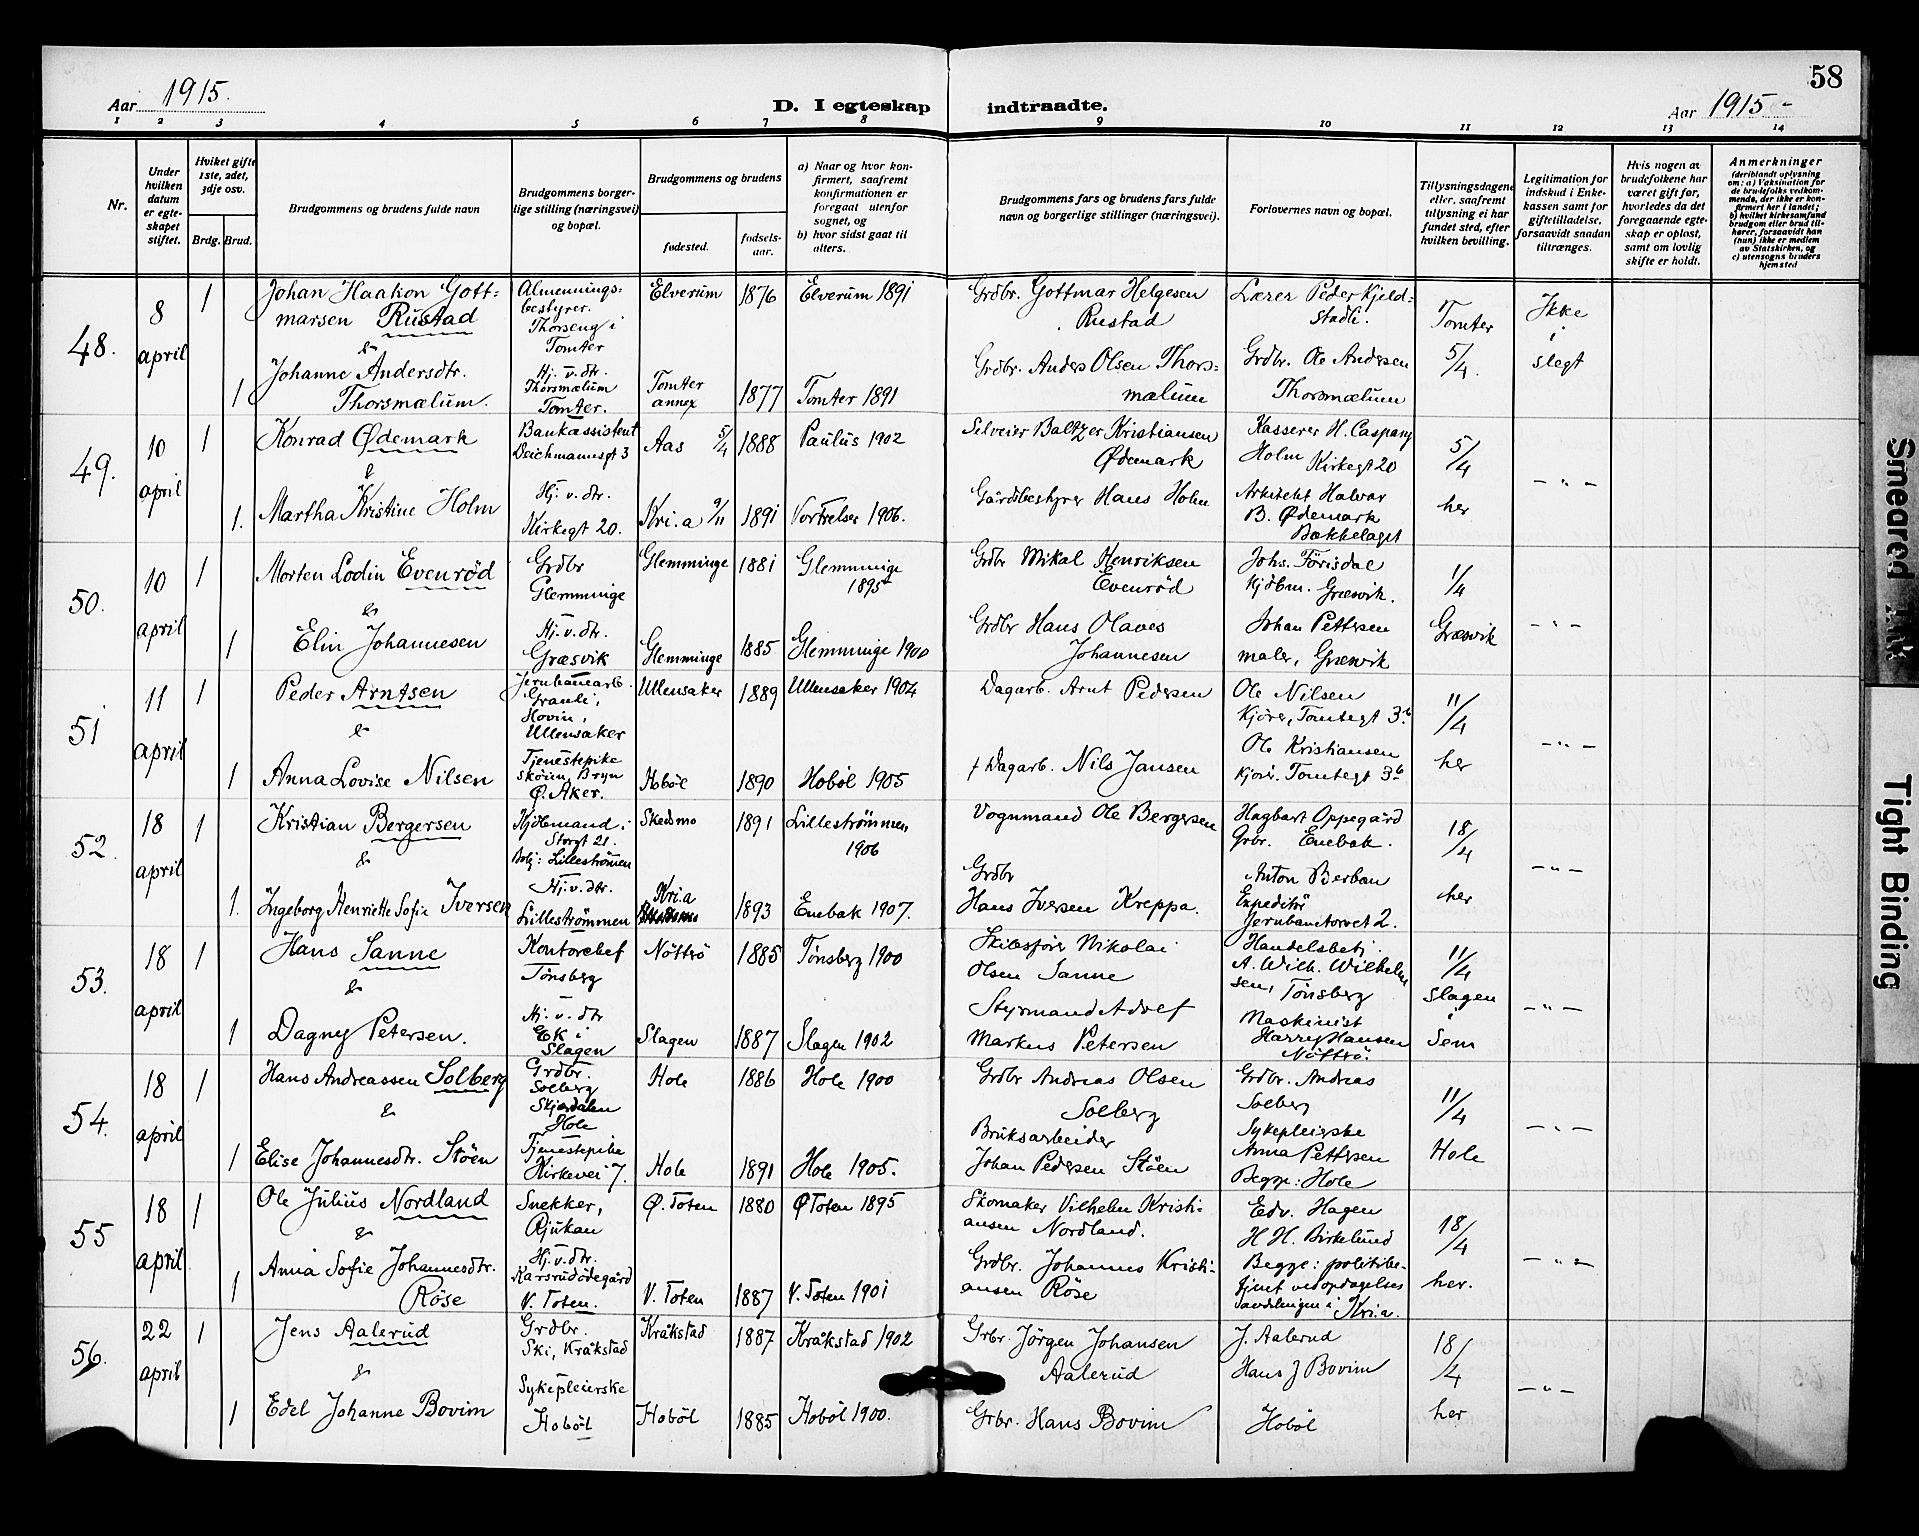 58
Aar 1915.
D. I egteskap indtraadte.
Aar 1915-
1 2 3 4 5 6 7 8 9 10 11 12 13 14
Nr.
Under hvilken datum er egteskapet stiftet.
Hvilket gifte 1ste, 2det, 3dje osv.
Brdg. Brud.
Brudgommens og brudens fulde navn
Brudgommens borgerlige stilling (næringsvei) og bopæl.
Brudgommens og brudens
fødested.
fødselsaar.
a) Naar og hvor konfirmert, saafremt konfirmationen er foregaat utenfor sognet, og
b) hvor sidst gaat til alters.
Brudgommens fars og brudens fars fulde navn og borgerlige stillinger (næringsvei).
Forlovernes navn og bopæl.
Tillysningsdagene eller, saafremt tillysning ei har fundet sted, efter hvilken bevilling.
Legitimation for indskud i Enkekassen samt for giftetilladelse, forsaavidt saadan tiltrænges.
Hvis nogen av brudefolkene har været gift før, hvorledes da det foregaaende egteskap er opløst, samt om lovlig skifte er holdt.
Anmerkninger
(deriblandt oplysning om: a) Vaksination for de brudefolks vedkommende, der ikke er konfirmert her i landet; b) hvilket kirkesamfund brudgom eller brud tilhører, forsaavidt han (hun) ikke er medlem av Statskirken, og c) utensogns bruders hjemsted
48. 8 april 1 Johan Haakon Gottmarsen Rustad
Almenningsbestyrer. Thorseng i Tomter
Elverum 1876 Elverum 1891
Grdbr. Gottmar Helgesen Rustad
Lærer Peder Kjeldstadli.
Tomter 5/4. Ikke i slegt
&
1 Johanne Andersdtr. Thorsmælum.
Hj. v. dtr. Thorsmælum Tomter.
Tomter annex 1877 Tomter 1891
Grdbr. Anders Olsen Thorsmælum
Grdbr. Ole Andersen Thorsmælum
49. 10 april 1 Konrad Ødemark
Bankassistent Deichmannsgt 3
Aas 5/4 1888 Paulus 1902
Selveier Baltzer Kristiansen Ødemark
Kasserer H. Caspary Holm Kirkegt 20
5/4 her - " -
&
1. Martha Kristine Holm
Hj. v. dtr. Kirkegt 20.
Kri.a 9/11 1891 Vor Frelser 1906.
Gårdsbestyrer Hans Holm
Arkitekt Halvar B. Ødemark Bækkelaget
50. 10 april 1 Morten Lodin Evenrød
Grdbr Glemminge
Glemminge 1881 Glemminge 1895
Grdbr Mikal Henriksen Evenrød
Johs. Tørisdal Kjøbm. Græsvik.
1/4 Græsvik - " -
&
1 Elin Johannesen
Hj. v. dtr. Græsvik
Glemminge 1885 Glemminge 1900
Grdbr Hans Olaves Johannesen
Johan Pettersen maler, Græsvik
51 11 april 1 Peder Arntsen
Jernbanearb. Granli, Hovin, Ullensaker
Ullensaker 1889 Ullensaker 1904
Dagarb. Arnt Pedersen
Ole Nilsen Kjører, Tomtegt 3b
11/4 her - " -
&
1 Anna Lovise Nilsen
Tjenestepike Skøien, Bryn Ø. Aker.
Hobøl 1890 Hobøl 1905
† Dagarb. Nils Jansen
Ole Kristiansen Kjører. Tomtegt 3b
52. 18 april 1 Kristian Bergersen
Kjøbmand i Storgt 21. Bolj: Lillestrømmen
Skedsmo 1891 Lillestrømmen 1906
Vognmand Ole Bergersen
Hagbart Oppegård Grbr. Enebak.
18/4 her - " -
&
1. Ingeborg Henriette Sofie Iversen
Hj. v. dtr. Lillestrømmen
Kri.a 1893 Enebak 1907.
Grdbr Hans Iversen Kreppa.
Anton Berban Expeditør Jernbanetorvet 2.
53. 18 april 1 Hans Sanne
Kontorchef Tønsberg
Nøtterø 1885 Tønsberg 1900
Skibsfører Nikolai Olsen Sanne
Handelsbetj. A. Wilh. Wilhelmsen, Tønsberg
11/4 Slagen i Sem - " -
&
1 Dagny Petersen.
Hj. v. dtr Ek i Slagen
Slagen 1887 Slagen 1902
Styrmand Adolf Markus Petersen
Maskinist Harry Hansen Nøtterø.
54. 18 april 1 Hans Andreassen Solberg
Grdbr. Solberg Skjærdalen Hole
Hole 1886 Hole 1900
Grdbr Andreas Olsen Solberg
Grdbr. Andreas Solberg
11/4 Hole - " -
&
1 Elise Johannesdtr. Støen
Tjenestepike Kirkevei 7.
Hole 1891 Hole 1905.
Bruksarbeider Johan Pedersen Støen
Sykepleierske Anna Pettersen Begge: Hole
55 18 april 1 Ole Julius Nordland
Snekker, Rjukan
Ø. Toten 1880 Ø Toten 1895
Skomaker Vilhelm Kristiansen Nordland.
Edv. Hagen H H. Birkelund
18/4 her. - " -
&
1 Anna Sofie Johannesdtr. Røse
Hj. v. dtr. Karsrudødegård V. Toten.
V. Toten 1887 V. Toten 1901
Grdbr. Johannes Kristiansen Røse
Begge: politibetjent ved opdagelsesavdelingen i Kri.a.
56. 22 april 1 Jens Aalerud
Grdbr. Ski, Kråkstad
Kråkstad 1887 Kråkstad 1902
Grbr. Jörgen Johansen Aalerud
J. Aalerud Hans J Bovim
18/4 her - " -
&
1 Edel Johanne Bovim
Sykepleierske Hobøl
Hobøl 1885 Hobøl 1900.
Grbr. Hans Bovim
Hobøl
Smeared Ink
Tight Binding